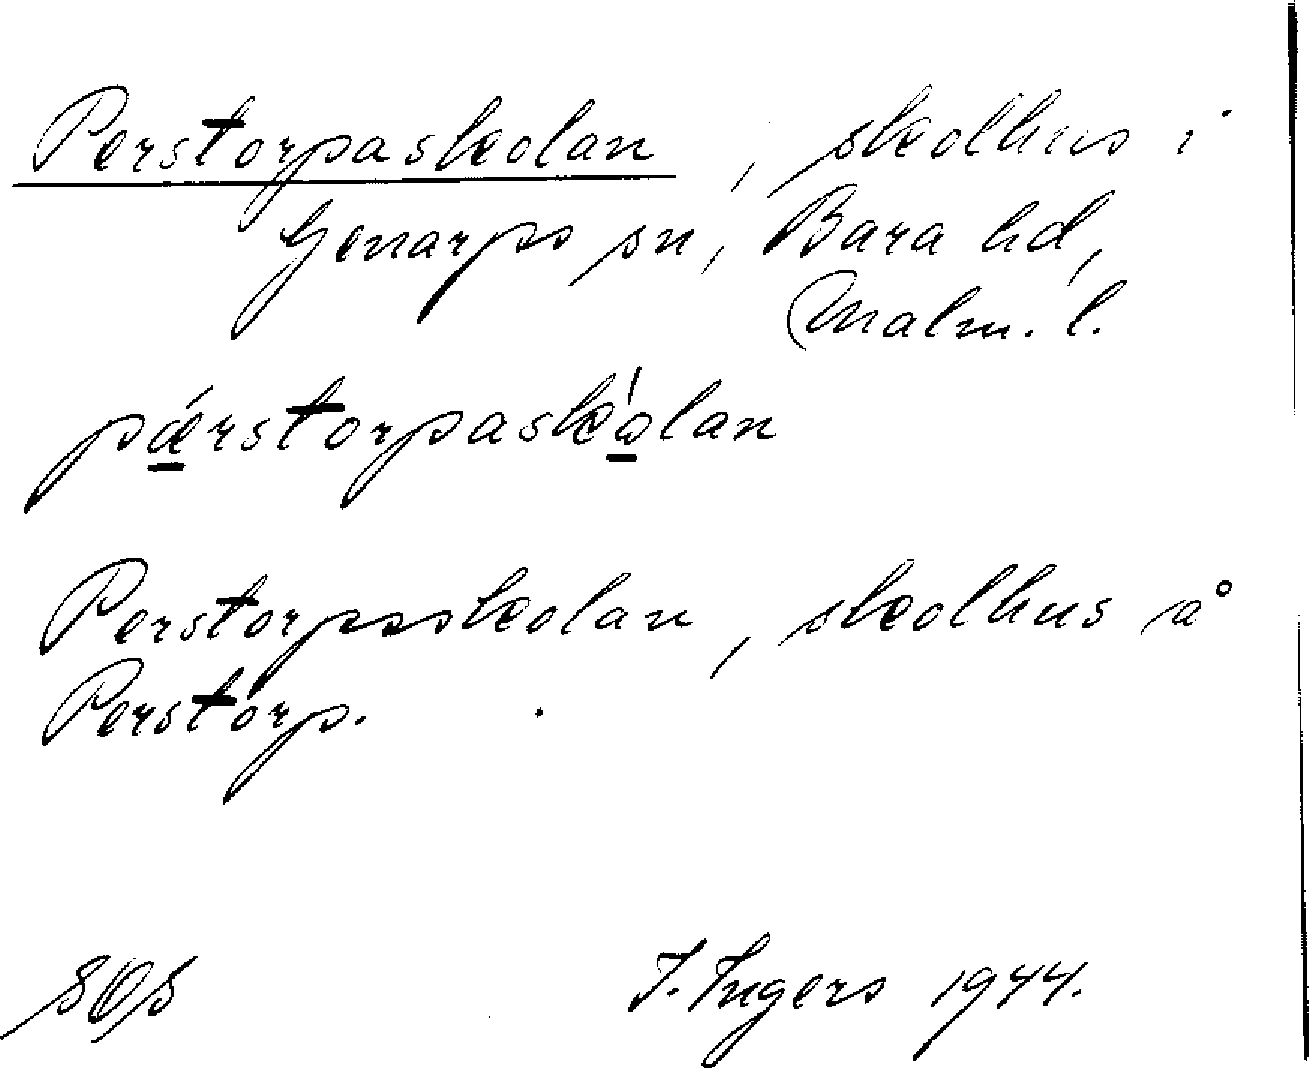 Perstorpaskolan, skolhus i
Genarps sn, Bara hd,
Malm. l.
pǽrstorpaskólan
Perstorpsskolan, skolhus å
Perstorp.
SOS
I. Ingers 1944.